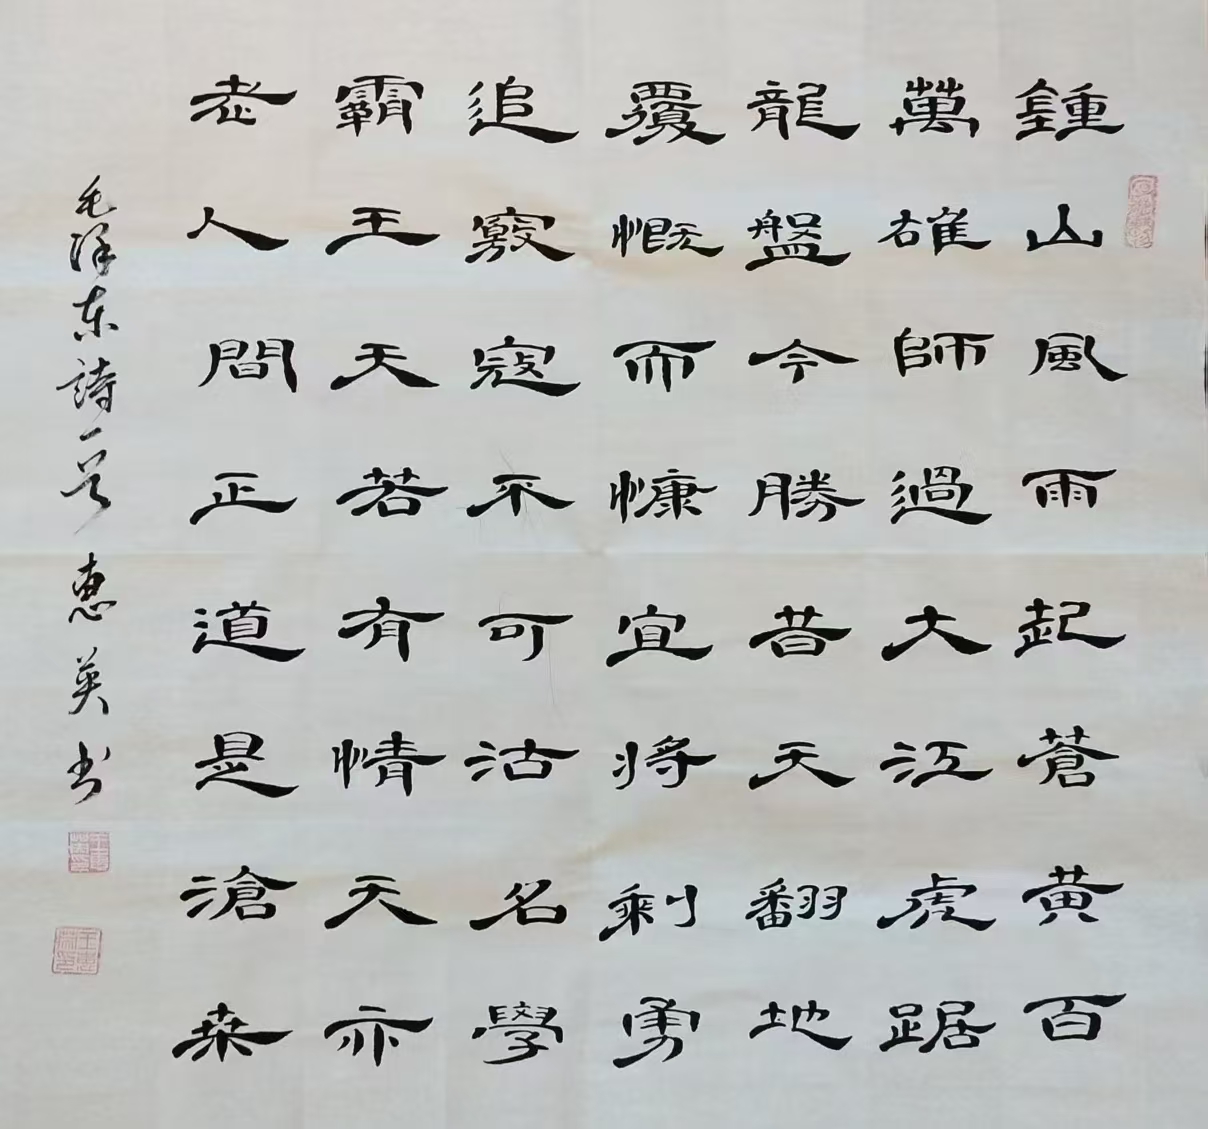 鍾山風雨起蒼黃百
萬雄師過大江虎踞
龍盤今勝昔天翻地
覆慨而慷宜將剩勇
追窮寇不可沽名學
霸王天若有情天亦
老人間正道是滄桑
毛泽东詩一首 惠英书